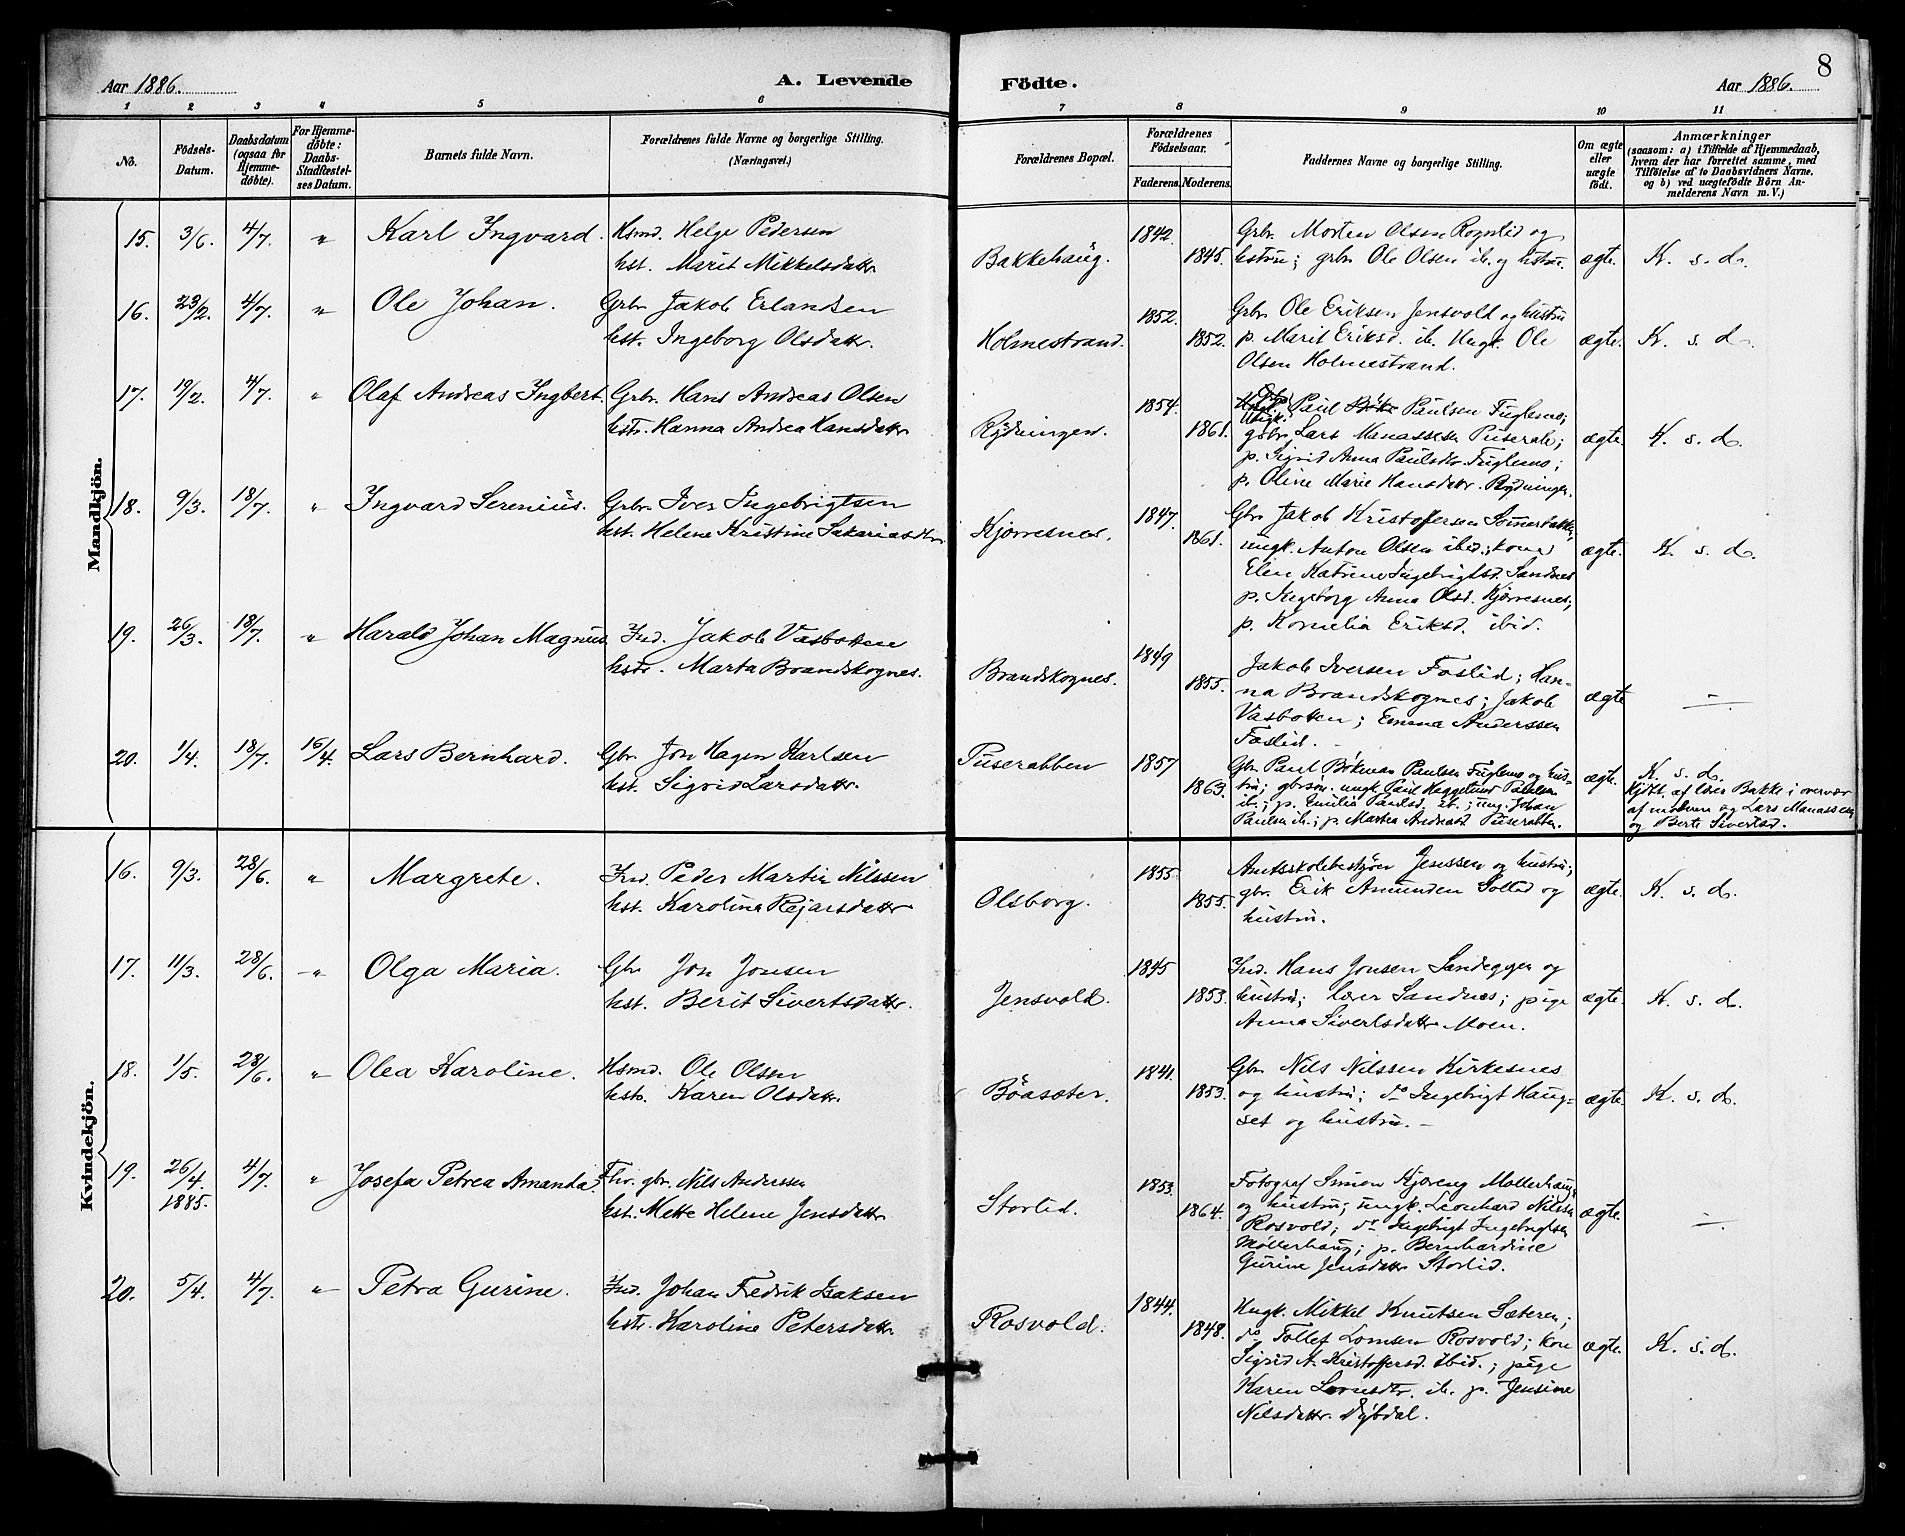 8
Aar 1886.
A. Levende
Födte.
Aar 1886.
1 2 3 4 5 6 7 8 9 10 11
No.
Födsels-
Datum.
Daabsdatum
(ogsaa for
Hjemme-
döbte).
For Hjemme-
döbte:
Daabs-
Stadfæstel-
ses Datum.
Barnets fulde Navn.
Forældrenes fulde Navne og borgerlige Stilling.
(Næringsvei.)
Forældrenes Bopæl.
Forældrenes
Födselsaar.
Faderens. Moderens.
Faddernes Navne og borgerlige Stilling.
Om ægte
eller
uægte
födt.
Anmærkninger
(saasom: a) i Tilfælde af Hjemmedaab,
hvem der har forrettet samme, med
Tilföielse af to Daabsvidners Navne,
og b) ved uægtefödte Börn An-
melderens Navn m. V.)
Mandkjön.
15. 3/6. 4/7. " Karl Ingvard. Hsmd. Helge Pedersen
hst. Marit Mikkelsdattr
Bakkehaug. 1842. 1845.
Grbr. Morten Olsen Rognlid og
hustru; grbr Ole Olsen ib. og hustru.
ægte. K. s. d.
16. 23/2. 4/7. " Ole Johan. Grbr Jakob Erlandsen
hst. Ingeborg Olsdattr.
Holmestrand. 1852. 1852.
Grbr Ole Eriksen Jensvold og hustru
p. Marit Eriksd. ib. Ungk. Ole
Olsen Holmestrand.
ægte. K. s. d.
17. 19/2. 4/7. " Olaf Andreas Ingbert. Grbr. Hans Andreas Olsen
hstr. Hanna Andrea Hansdattr
Rydningen. 1854. 1861.
Ungk. Paul Paulsen Fuglemo;
gbr. Lars Manassesen Puserab;
p. Sigrid Anna Paulsdtr Fuglemo;
p. Oline Marie Hansdattr. Rydningen.
ægte. K. s. d.
18. 9/3. 18/7. " Ingvard Serenius. Grbr. Iver Ingebrigtsen
hst. Helene Kristine Sakariasdtr
Kjorresnes. 1847. 1861.
Gbr Jakob Kristoffersen Somerbakken,
ungk. Anton Olsen ibid.; kone
Elen Katrine Ingebrigtsd. Sandnes
p. Ingeborg Anna Olsd. Kjørresnes;
p. Kornelia Eriksd. ibid.
ægte. K. s. d.
19. 26/3. 18/7. " Harald Johan Magnus. Ind. Jakob Vasbotten
hstr. Marta Brandskognes.
Brandskognes. 1849 1855.
Jakob Iversen Foslid; Han-
na Brandskognes; Jakob
Vasbotten; Emma Anderssen
Foslid.
ægte —
20. 1/4. 18/7. 16/4. Lars Bernhard. Gbr. Jon Hagen Karlsen
hst. Sigrid Larsdattr.
Puserabben 1857 1863.
Gbr Paul Bökenas Paulsen Fuglemo og hus-
tru; gbrsön. ungk. Paul Heggelund Paulsen
ib.; p. Emilia Paulsd. ib.; ung. Johan
Paulsen ib.; p. Martea Andreasd Puserabben.
ægte. K. s. d.
Hjdt. af lärer Bakke i overvær
af moderen og Lars Manassesen
og Berte Sivertsd.
Kvindekjön.
16. 9/3. 28/6. " Margrete. Ind. Peder Martin Nilssen
hst. Karolina Rejarsdattr
Olsborg. 1855. 1855.
Amtsskolebestyrer Jenssen og hustru;
gbr. Erik Amunden Solli­d og
hustru.
ægte. K. s. d.
17. 11/3. 28/6. " Olga Maria. Gbr Jon Jonsen
hst. Berit Sivertsdattr.
Jensvold. 1845 1853.
Ind. Hans Jonsen Sandeggen og
hustru; lærer Sandnes; pige
Anna Sivertsdattr Moen.
ægte. K. s. d.
18. 1/5. 28/6. " Olea Karoline. Hsmd. Ole Olsen
hstr. Karen Olsdattr.
Böasæter. 1841. 1853.
Gbr Nils Nilssen Kirkesnes
og hustru; do Ingebrigt Haug-
set og hustru. —
ægte. K. s. d.
19. 26/4 1885. 4/7. " Josefa Petrea Amanda. Fhv. gbr. Nils Anderssen
hst. Mette Helene Jensdattr
Storlid. 1853. 1864.
Fotograf Simon Kjøreng Møllerhaug
og hustru; ungk. Leonhard Nilssen
Rosvold; do Ingebrigt Ingebrigtsen
Møllerhaug; p. Bernhardine
Gurine Jensdattr Storlid.
ægte. —
20. 5/4. 4/7. " Petra Gurine. Ind. Johan Fredrik Isaksen
hstr. Karoline Petersdattr
Rosvold. 1844. 1848.
Ungk. Mikkel Knutsen Sæteren;
do Tollef Lomsen Rosvold; kone
Sigrid A. Kristoffersd. Ibid.; pige
Karen Lornsdtr. ib. p. Jensine
Nilsdattr. Dybdal.
ægte. K. s. d.